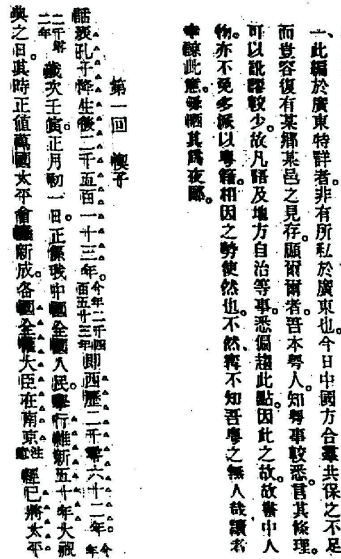 一、此編於廣東特詳者。非有所私於廣東也。今日中國方合羣共保之不足
而豈容復有某鄉某邑之見存。顧爾爾者。吾本粤人。知粤事較悉。言其條理。
可以訛謬較少。故凡語及地方自治等事。悉偏趨此點。因此之故。故書中人
物亦不免多派以粤籍。相因之勢使然也。不然。寧不知吾粤之無人哉。讀者
幸諒此意。毋哂其爲夜郎。
第一回 楔子
話表孔子降生後二千五百一十三年。今年二千四百五十三年即西歷二千零六十二年。今年
二千零二年歲次壬寅正月初一日。正係我中國全國人民舉行維新五十年大祝
典之日。其時正值萬國太平會議新成。各國全權大臣在南京注意經已將太平